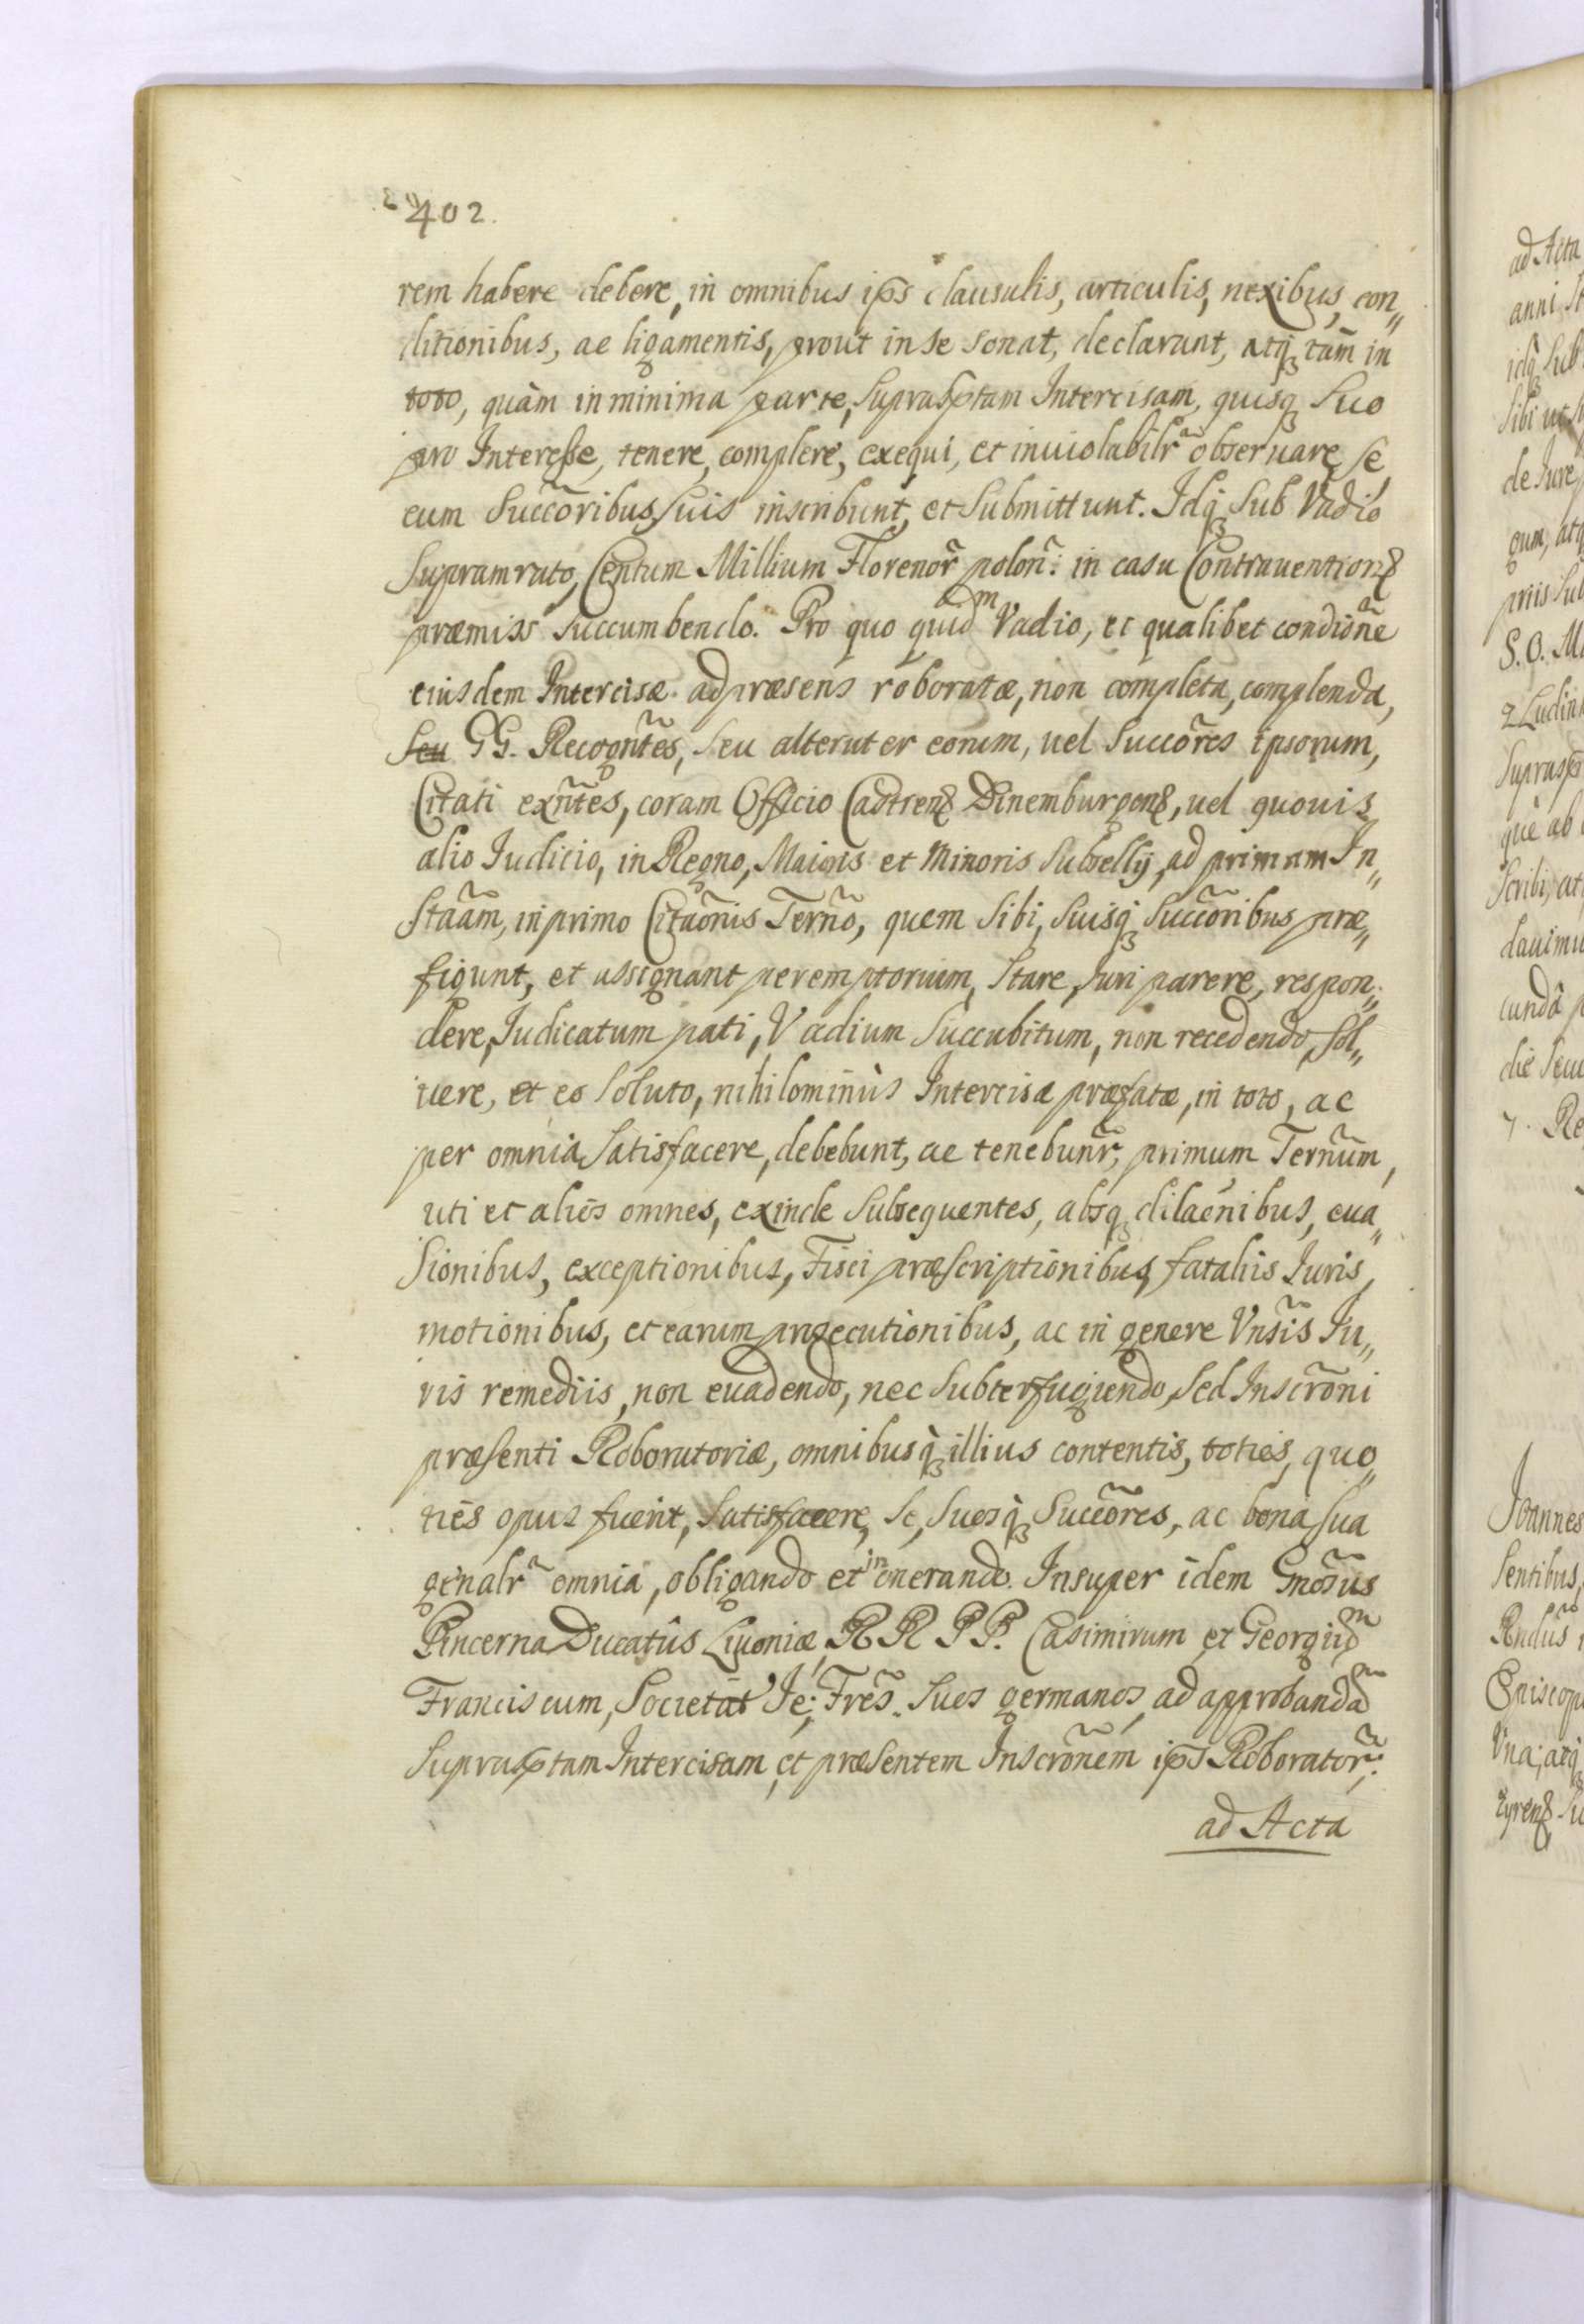 402.
rem habere debere, in omnibus ip̄s clausulis, articulis, nexibus, con„
ditionibus, ac ligamentis, prout in se sonat, declarant, atq̨ tam̄ in
toto, quàm in minima parte, suprasp̄tam Intercisam, quisq̨ suo
pro Interesse, tenere, complere, exequi, et inuiolabilr̃ obseruare, se
cum Succõribus suis inscribunt, et submittunt. Idq̨ sub Vadio
supramrato, Centum Millium Florenor̃ polon̄: in casu Contrauention̨
præmiss succumbendo. Pro quo quidᵐ Vadio, et qualibet condiõne
eiusdem Intercisæ ad præsens roboratæ, non completa, complenda,
seu GG. Recogñtes, seu alteruter eorum, uel Succõres ipsorum,
Citati exñtes, coram Officio Castren̨ Dinemburgen̨, uel quouis
alio Iudicio, in Regno, Maioris et Minoris subsellij, ad primam In„
stãam, in primo Citaõnis Terño, quem sibi, suisq̨ Succõribus præ„
figunt, et assignant peremptorium, stare, Iuri parere, respon„
dere, Iudicatum pati, Vadium succubitum, non recedendo, sol„
uere, et eo soluto, nihilominùs Intercisæ præfatæ, in toto, ac
per omnia satisfacere, debebunt, ac tenebunr̃, primum Terñum,
uti et aliõs omnes, exinde subsequentes, absq̨ dilaõnibus, eua„
sionibus, exceptionibus, Fisci præscriptionibus, fataliis Iuris,
motionibus, et earum prosecutionibus, ac in genere Vnĩs Iu„
ris remediis, non euadendo, nec subterfugiendo, sed Inscrõni
præsenti Roboratoriæ, omnibusq̨ illius contentis, toties, quo„
ties opus fuerit, satisfacere, se, suosq̨ Succõres, ac bona sua
genalr̃ omnia, obligando et inonerando. Insuper idem Gnõsus
Pincerna Ducatûs Liuoniæ, RR PP. Casimirum et Georgiũ
Franciscum, Societãt Je; Frẽs. suos germanos, ad approbandã
suprasp̄tam Intercisam, et præsentem Inscrõnem ip̄s Roborator̃:
ad Acta